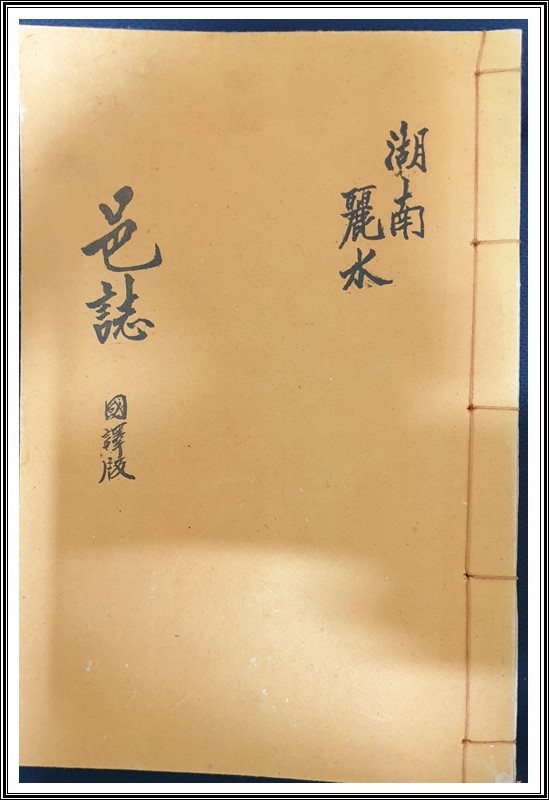 湖南
麗水
邑誌
國譯版